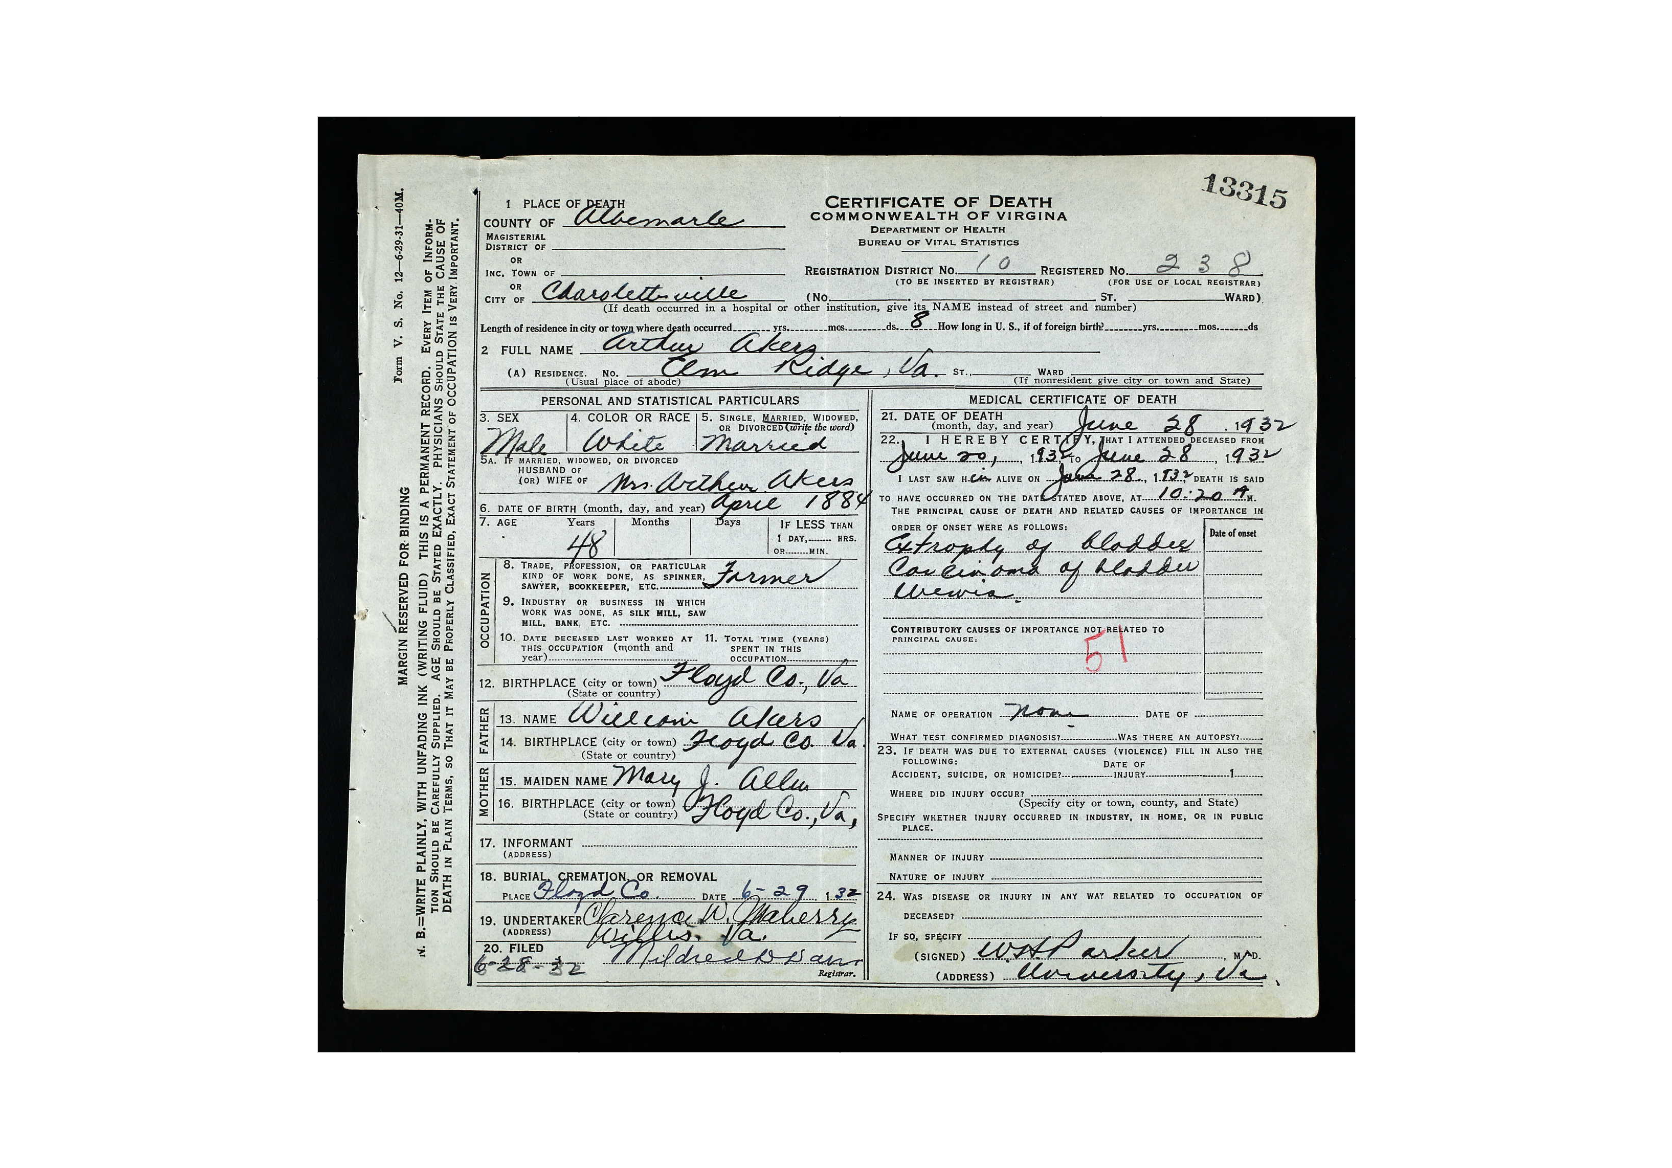 13315
CERTIFICATE OF DEATH
COMMONWEALTH OF VIRGINIA
DEPARTMENT OF HEALTH
BUREAU OF VITAL STATISTICS
1 PLACE OF DEATH
COUNTY OF Albemarle
MAGISTERIAL
DISTRICT OF
OR
INC. TOWN OF
REGISTRATION DISTRICT No. 10 REGISTERED No. 238
(TO BE INSERTED BY REGISTRAR) (FOR USE OF LOCAL REGISTRAR)
OR
CITY OF Charolettsville (No. ST. WARD)
(If death occurred in a hospital or other institution, give its NAME instead of street and number)
Length of residence in city or town where death occurred yrs. mos. ds. 8 How long in U. S., if of foreign birth? yrs. mos. ds
2 FULL NAME Arthur Akers
(A) RESIDENCE. No. Elm Ridge, Va. ST., WARD
(Usual place of abode) (If nonresident give city or town and State)
PERSONAL AND STATISTICAL PARTICULARS
3. SEX 4. COLOR OR RACE 5. SINGLE, MARRIED, WIDOWED,
OR DIVORCED (write the word)
Male White Married
5A. IF MARRIED, WIDOWED, OR DIVORCED
HUSBAND OF
(OR) WIFE OF Mrs. Arthur Akers
6. DATE OF BIRTH (month, day, and year) April 1884
7. AGE Years Months Days IF LESS THAN
1 DAY, HRS.
48 OR MIN.
OCCUPATION
8. TRADE, PROFESSION, OR PARTICULAR
KIND OF WORK DONE, AS SPINNER,
SAWYER, BOOKKEEPER, ETC. Farmer
9. INDUSTRY OR BUSINESS IN WHICH
WORK WAS DONE, AS SILK MILL, SAW
MILL, BANK, ETC.
10. DATE DECEASED LAST WORKED AT 11. TOTAL TIME (YEARS)
THIS OCCUPATION (month and SPENT IN THIS
year) OCCUPATION
12. BIRTHPLACE (city or town) Floyd Co., Va
(State or country)
FATHER
13. NAME William Akers
14. BIRTHPLACE (city or town) Floyd Co. Va.
(State or country)
MOTHER
15. MAIDEN NAME Mary J. Allen
16. BIRTHPLACE (city or town) Floyd Co., Va,
(State or country)
17. INFORMANT
(ADDRESS)
18. BURIAL, CREMATION, OR REMOVAL
PLACE Floyd Co. DATE 6-29, 132
19. UNDERTAKER Clarence W. Maberry
(ADDRESS) Willis, Va.
20. FILED
6-28-32 Mildred
Registrar.
MEDICAL CERTIFICATE OF DEATH
21. DATE OF DEATH
(month, day, and year) June 28, 1932
22. I HEREBY CERTIFY, THAT I ATTENDED DECEASED FROM
June 20, 1932 TO June 28, 1932
I LAST SAW Him ALIVE ON June 28, 1932 DEATH IS SAID
TO HAVE OCCURRED ON THE DATE STATED ABOVE, AT 10:20 A. M.
THE PRINCIPAL CAUSE OF DEATH AND RELATED CAUSES OF IMPORTANCE IN
ORDER OF ONSET WERE AS FOLLOWS: Date of onset
Extrophy of bladder
Carcinoma of bladder
Uremia.
CONTRIBUTORY CAUSES OF IMPORTANCE NOT RELATED TO
PRINCIPAL CAUSE:
51
NAME OF OPERATION None DATE OF
WHAT TEST CONFIRMED DIAGNOSIS? WAS THERE AN AUTOPSY?
23. IF DEATH WAS DUE TO EXTERNAL CAUSES (VIOLENCE) FILL IN ALSO THE
FOLLOWING: DATE OF
ACCIDENT, SUICIDE, OR HOMICIDE? INJURY 1
WHERE DID INJURY OCCUR?
(Specify city or town, county, and State)
SPECIFY WHETHER INJURY OCCURRED IN INDUSTRY, IN HOME, OR IN PUBLIC
PLACE.
MANNER OF INJURY
NATURE OF INJURY
24. WAS DISEASE OR INJURY IN ANY WAY RELATED TO OCCUPATION OF
DECEASED?
IF SO, SPECIFY
(SIGNED) W H Parker, M.D.
(ADDRESS) University, Va
Form V. S. No. 12—6-29-31—40M.
MARGIN RESERVED FOR BINDING
N. B.—WRITE PLAINLY, WITH UNFADING INK (WRITING FLUID) THIS IS A PERMANENT RECORD. EVERY ITEM OF INFORM-
TION SHOULD BE CAREFULLY SUPPLIED. AGE SHOULD BE STATED EXACTLY. PHYSICIANS SHOULD STATE THE CAUSE OF
DEATH IN PLAIN TERMS, SO THAT IT MAY BE PROPERLY CLASSIFIED, EXACT STATEMENT OF OCCUPATION IS VERY IMPORTANT.